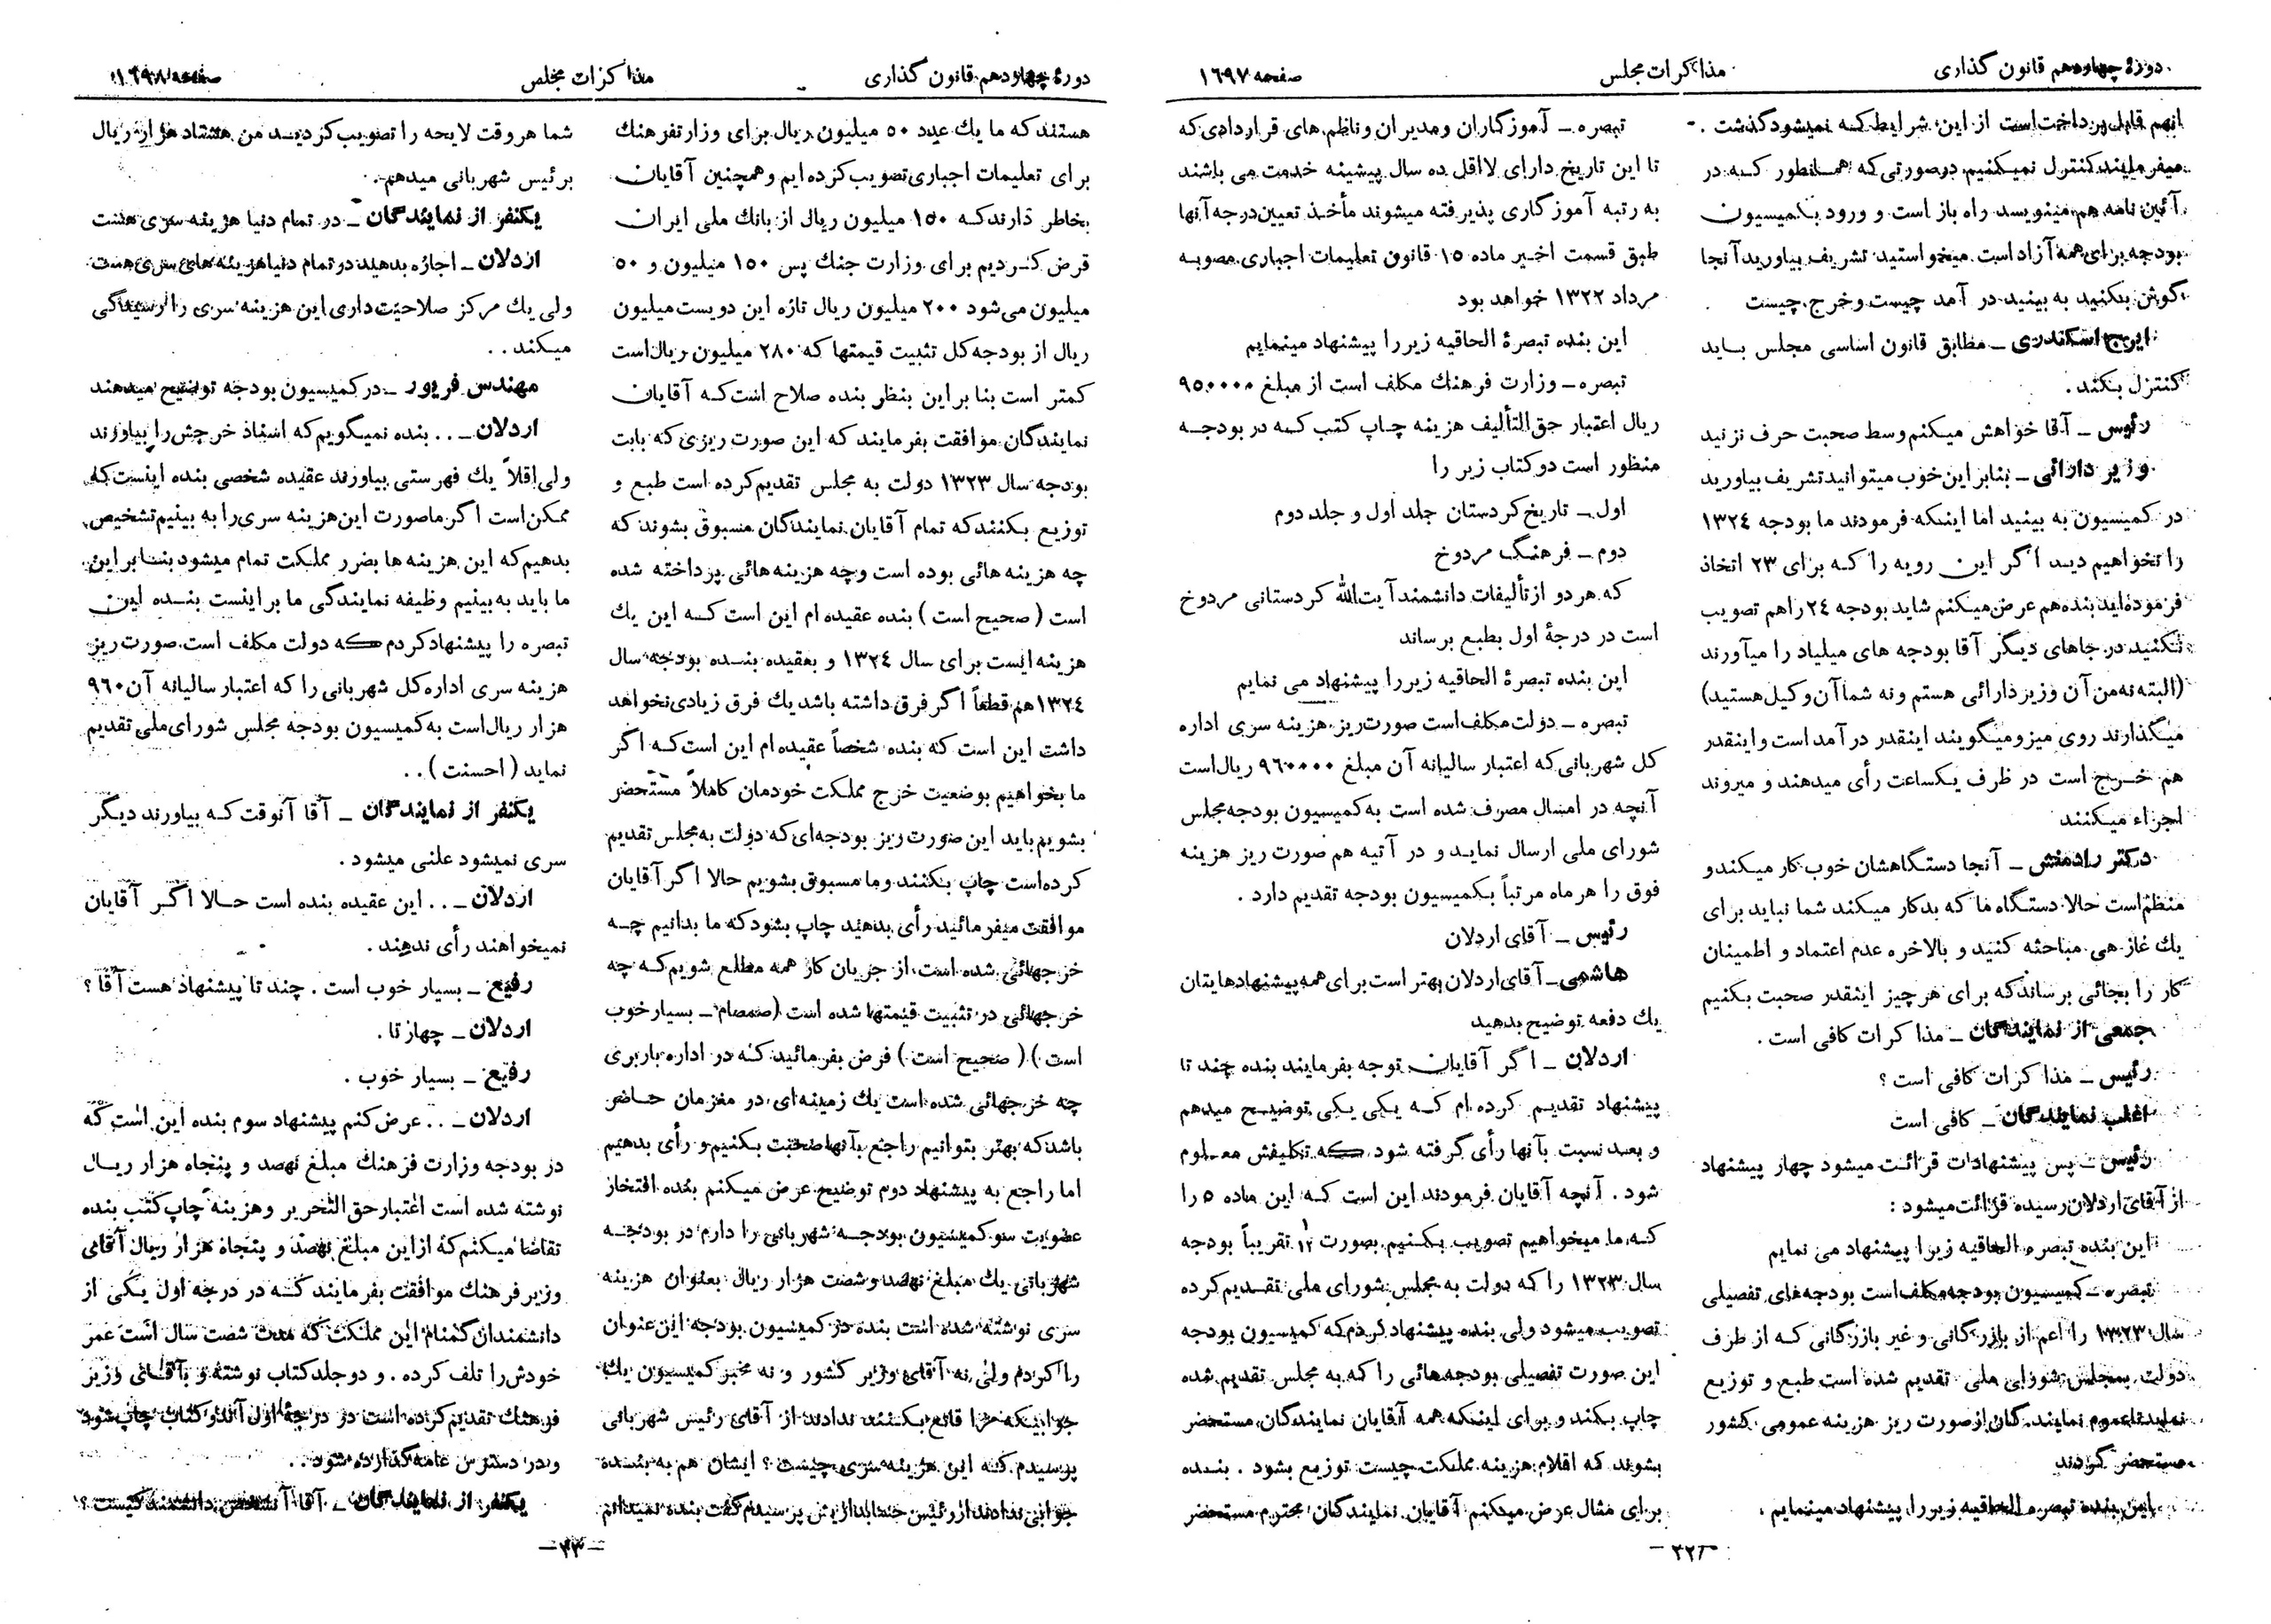 دورهٔ چهاردهم قانون گذاری
مذاکرات مجلس
صفحه ۱۶۹۷
آنهم قابل پرداخت است از این شرایط که نمیشود گذشت .
میفرمایند کنترل نمیکنیم درصورتی که همانطور که در
آئین نامه هم مینویسد راه باز است و ورود بکمیسیون
بودجه برای همه آزاد است میخواستید تشریف بیاورید آنجا
گوش بکنید به بینید در آمد چیست و خرج چیست
ایرج اسکندری ــ مطابق قانون اساسی مجلس باید
کنترل بکند .
رئیس ــ آقا خواهش میکنم وسط صحبت حرف نزنید
وزیر دارائی ــ بنابر این خوب میتوانید تشریف بیاورید
در کمیسیون به بینید اما اینکه فرمودند ما بودجه ۱۳۲٤
را نخواهیم دید اگر این رویه را که برای ۲۳ اتخاذ
فرموده‌اید بنده هم عرض میکنم شاید بودجه ۲٤ را هم تصویب
نکنید در جاهای دیگر آقا بودجه های میلیاد را میآورند
(البته نه من آن وزیر دارائی هستم ونه شما آن وکیل هستید)
میگذارند روی میز و میگویند اینقدر در آمد است و اینقدر
هم خرج است در ظرف یکساعت رأی میدهند و میروند
اجراء میکنند
دکتر رادمنش ــ آنجا دستگاهشان خوب کار میکند و
منظم است حالا دستگاه ما که بدکار میکند شما نباید برای
یك غاز هی مباحثه کنید و بالاخره عدم اعتماد و اطمینان
کار را بجائی برساند که برای هر چیز اینقدر صحبت بکنیم
جمعی از نمایندگان ــ مذاکرات کافی است .
رئیس ــ مذاکرات کافی است ؟
اغلب نمایندگان ــ کافی است
رئیس ــ پس پیشنهادات قرائت میشود چهار پیشنهاد
از آقای اردلان رسیده قرائت میشود :
این بنده تبصره الحاقیه زیر را پیشنهاد می نمایم
تبصره ــ کمیسیون بودجه مکلف است بودجه های تفصیلی
سال ۱۳۲۳ را اعم از بازرگانی و غیر بازرگانی که از طرف
دولت بمجلس شورای ملی تقدیم شده است طبع و توزیع
نماید تا عموم نمایندگان از صورت ریز هزینه عمومی کشور
مستحضر گردند
این بنده تبصره الحاقیه زیر را پیشنهاد مینمایم .
تبصره ــ آموزگاران و مدیران و ناظم های قراردادی که
تا این تاریخ دارای لااقل ده سال پیشینه خدمت می باشند
به رتبه آموزگاری پذیرفته میشوند مأخذ تعیین درجه آنها
طبق قسمت اخیر ماده ۱۵ قانون تعلیمات اجباری مصوبه
مرداد ۱۳۲۲ خواهد بود
این بنده تبصرهٔ الحاقیه زیر را پیشنهاد مینمایم
تبصره ــ وزارت فرهنك مکلف است از مبلغ ۹۵۰۰۰۰
ریال اعتبار حق التألیف هزینه چاپ کتب که در بودجه
منظور است دو کتاب زیر را
اول ــ تاریخ کردستان جلد اول و جلد دوم
دوم ــ فرهنگ مردوخ
که هر دو از تألیفات دانشمند آیت‌الله کردستانی مردوخ
است در درجهٔ اول بطبع برساند
این بنده تبصرهٔ الحاقیه زیر را پیشنهاد می نمایم
تبصره ــ دولت مکلف است صورت ریز هزینه سری اداره
کل شهربانی که اعتبار سالیانه آن مبلغ ۹۶۰۰۰۰ ریال است
آنچه در امسال مصرف شده است به کمیسیون بودجه مجلس
شورای ملی ارسال نماید و در آتیه هم صورت ریز هزینه
فوق را هر ماه مرتباً بکمیسیون بودجه تقدیم دارد .
رئیس ــ آقای اردلان
هاشمی ــ آقای اردلان بهتر است برای همه پیشنهادهایتان
یك دفعه توضیح بدهید
اردلان ــ اگر آقایان توجه بفرمایند بنده چند تا
پیشنهاد تقدیم کرده ام که یکی یکی توضیح میدهم
و بعد نسبت بآنها رأی گرفته شود که تکلیفش معلوم
شود . آنچه آقایان فرمودند این است که این ماده ۵ را
که ما میخواهیم تصویب بکنیم بصورت ۱/۱۲ تقریباً بودجه
سال ۱۳۲۳ را که دولت به مجلس شورای ملی تقدیم کرده
تصویب میشود ولی بنده پیشنهاد کردم که کمیسیون بودجه
این صورت تفصیلی بودجه هائی را که به مجلس تقدیم شده
چاپ بکند و برای اینکه همه آقایان نمایندگان مستحضر
بشوند که اقلام هزینه مملکت چیست توزیع بشود . بنده
برای مثال عرض میکنم آقایان نمایندگان محترم مستحضر
ــ ۳۲ ــ
دورهٔ چهاردهم قانون گذاری
مذاکرات مجلس
صفحه ۱۶۹۸
هستند که ما یك عدد ۵۰ میلیون ریال برای وزارت فرهنك
برای تعلیمات اجباری تصویب کرده ایم و همچنین آقایان
بخاطر دارند که ۱۵۰ میلیون ریال از بانك ملی ایران
قرض کردیم برای وزارت جنك پس ۱۵۰ میلیون و ۵۰
میلیون می شود ۲۰۰ میلیون ریال تازه این دویست میلیون
ریال از بودجه کل تثبیت قیمتها که ۲۸۰ میلیون ریال است
کمتر است بنا بر این بنظر بنده صلاح است که آقایان
نمایندگان موافقت بفرمایند که این صورت ریزی که بابت
بودجه سال ۱۳۲۳ دولت به مجلس تقدیم کرده است طبع و
توزیع بکنند که تمام آقایان نمایندگان مسبوق بشوند که
چه هزینه هائی بوده است و چه هزینه هائی پرداخته شده
است (صحیح است) بنده عقیده ام این است که این یك
هزینه ایست برای سال ۱۳۲٤ و بعقیده بنده بودجه سال
۱۳۲٤ هم قطعاً اگر فرق داشته باشد یك فرق زیادی نخواهد
داشت این است که بنده شخصاً عقیده ام این است که اگر
ما بخواهیم بوضعیت خرج مملکت خودمان کاملاً مستحضر
بشویم باید این صورت ریز بودجه‌ای که دولت به مجلس تقدیم
کرده است چاپ بکنند و ما مسبوق بشویم حالا اگر آقایان
موافقت میفرمائید رأی بدهید چاپ بشود که ما بدانیم چه
خرجهائی شده است از جریان کار همه مطلع شویم که چه
خرجهائی در تثبیت قیمتها شده است (صمصام ــ بسیار خوب
است) (صحیح است) فرض بفرمائید که در اداره باربری
چه خرجهائی شده است یك زمینه‌ای در مغزمان حاضر
باشد که بهتر بتوانیم راجع بآنها صحبت بکنیم و رأی بدهیم
اما راجع به پیشنهاد دوم توضیح عرض میکنم بنده افتخار
عضویت سو کمیسیون بودجه شهربانی را دارم در بودجه
شهربانی یك مبلغ نهصد و شصت هزار ریال بعنوان هزینه
سری نوشته شده است بنده در کمیسیون بودجه این عنوان
را کردم ولی نه آقای وزیر کشور و نه مخبر کمیسیون یك
جوابیکه مرا قانع بکنند ندادند از آقای رئیس شهربانی
پرسیدم که این هزینه سری چیست ؟ ایشان هم به بنده
جوابی ندادند از رئیس حسابداریش پرسیدم گفت بنده نمیدانم
شما هر وقت لایحه را تصویب کردید من هشتاد هزار ریال
برئیس شهربانی میدهم .
یکنفر از نمایندگان ــ در تمام دنیا هزینه سری هست
اردلان ــ اجازه بدهید در تمام دنیا هزینه های سری هست
ولی یك مرکز صلاحیت داری این هزینه سری را رسیدگی
میکند . .
مهندس فریور ــ در کمیسیون بودجه توضیح میدهند
اردلان ــ . . بنده نمیگویم که اسناد خرجش را بیاورند
ولی اقلاً یك فهرستی بیاورند عقیده شخصی بنده اینست که
ممکن است اگر ما صورت این هزینه سری را به بینیم تشخیص
بدهیم که این هزینه ها بضرر مملکت تمام میشود بنابر این
ما باید به بینیم وظیفه نمایندگی ما بر اینست بنده این
تبصره را پیشنهاد کردم که دولت مکلف است صورت ریز
هزینه سری اداره کل شهربانی را که اعتبار سالیانه آن ۹۶۰
هزار ریال است به کمیسیون بودجه مجلس شورای ملی تقدیم
نماید (احسنت) . .
یکنفر از نمایندگان ــ آقا آنوقت که بیاورند دیگر
سری نمیشود علنی میشود .
اردلان ــ . . این عقیده بنده است حالا اگر آقایان
نمیخواهند رأی ندهند .
رفیع ــ بسیار خوب است . چند تا پیشنهاد هست آقا ؟
اردلان ــ چهار تا .
رفیع ــ بسیار خوب .
اردلان ــ . . عرض کنم پیشنهاد سوم بنده این است که
در بودجه وزارت فرهنك مبلغ نهصد و پنجاه هزار ریال
نوشته شده است اعتبار حق التحریر و هزینه چاپ کتب بنده
تقاضا میکنم که از این مبلغ نهصد و پنجاه هزار ریال آقای
وزیر فرهنك موافقت بفرمایند که در درجه اول یکی از
دانشمندان گمنام این مملکت که مدت شصت سال است عمر
خودش را تلف کرده . و دو جلد کتاب نوشته و بآقای وزیر
فرهنك تقدیم کرده است در درجهٔ اول آندو کتاب چاپ شود
و در دسترس عامه گذارده شود . .
یکنفر از نمایندگان ــ آقا آنشخص دانشمند کیست ؟
ــ ۳۳ ــ